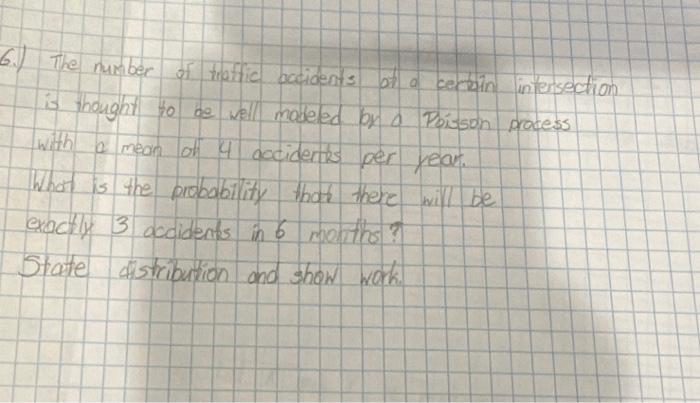 6.) The number of traffic accidents at a certain intersection
is thought to be well modeled by a Poisson process
with a mean of 4 accidents per year.
What is the probability that there will be
exactly 3 accidents in 6 months?
State distribution and show work.